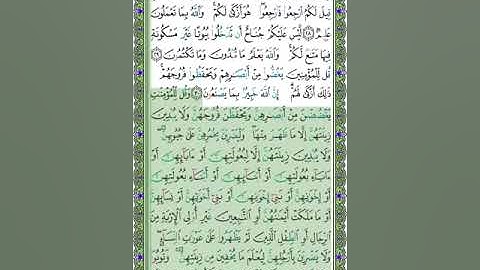 قِيلَ لَكُمُ ٱرْجِعُوا۟ فَٱرْجِعُوا۟ ۖ هُوَ أَزْكَىٰ لَكُمْ ۚ وَٱللَّهُ بِمَا تَعْمَلُونَ
عَلِيمٌ ٢٨ لَّيْسَ عَلَيْكُمْ جُنَاحٌ أَن تَدْخُلُوا۟ بُيُوتًا غَيْرَ مَسْكُونَةٍ
فِيهَا مَتَٰعٌ لَّكُمْ ۚ وَٱللَّهُ يَعْلَمُ مَا تُبْدُونَ وَمَا تَكْتُمُونَ ٢٩
قُل لِّلْمُؤْمِنِينَ يَغُضُّوا۟ مِنْ أَبْصَٰرِهِمْ وَيَحْفَظُوا۟ فُرُوجَهُمْ ۚ
ذَٰلِكَ أَزْكَىٰ لَهُمْ ۗ إِنَّ ٱللَّهَ خَبِيرٌۢ بِمَا يَصْنَعُونَ ٣٠ وَقُل لِّلْمُؤْمِنَٰتِ
يَغْضُضْنَ مِنْ أَبْصَٰرِهِنَّ وَيَحْفَظْنَ فُرُوجَهُنَّ وَلَا يُبْدِينَ
زِينَتَهُنَّ إِلَّا مَا ظَهَرَ مِنْهَا ۖ وَلْيَضْرِبْنَ بِخُمُرِهِنَّ عَلَىٰ جُيُوبِهِنَّ ۖ
وَلَا يُبْدِينَ زِينَتَهُنَّ إِلَّا لِبُعُولَتِهِنَّ أَوْ ءَابَآئِهِنَّ أَوْ
ءَابَآءِ بُعُولَتِهِنَّ أَوْ أَبْنَآئِهِنَّ أَوْ أَبْنَآءِ بُعُولَتِهِنَّ
أَوْ إِخْوَٰنِهِنَّ أَوْ بَنِىٓ إِخْوَٰنِهِنَّ أَوْ بَنِىٓ أَخَوَٰتِهِنَّ أَوْ نِسَآئِهِنَّ
أَوْ مَا مَلَكَتْ أَيْمَٰنُهُنَّ أَوِ ٱلتَّٰبِعِينَ غَيْرِ أُو۟لِى ٱلْإِرْبَةِ مِنَ
ٱلرِّجَالِ أَوِ ٱلطِّفْلِ ٱلَّذِينَ لَمْ يَظْهَرُوا۟ عَلَىٰ عَوْرَٰتِ ٱلنِّسَآءِ ۖ
وَلَا يَضْرِبْنَ بِأَرْجُلِهِنَّ لِيُعْلَمَ مَا يُخْفِينَ مِن زِينَتِهِنَّ ۚ وَتُوبُوٓا۟